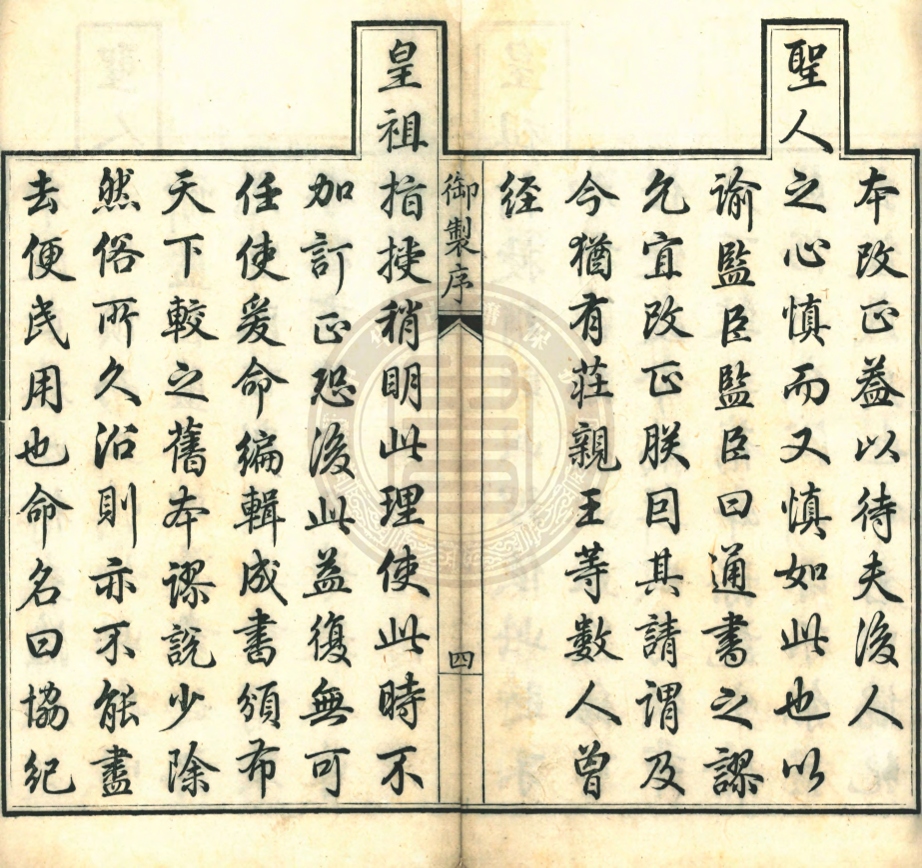 本改正蓋以待夫後人
聖人之心慎而又慎如此也以
諭監臣監臣曰通書之謬
允宜改正朕因其請謂及
今猶有莊親王等數人曾
经
御製序
四
皇祖指授稍明此理使此時不
加訂正恐後此益復無可
任使爰命編輯成書頒布
天下較之舊本謬説少除
然俗所久沿則亦不能盡
去便民用也命名曰協紀